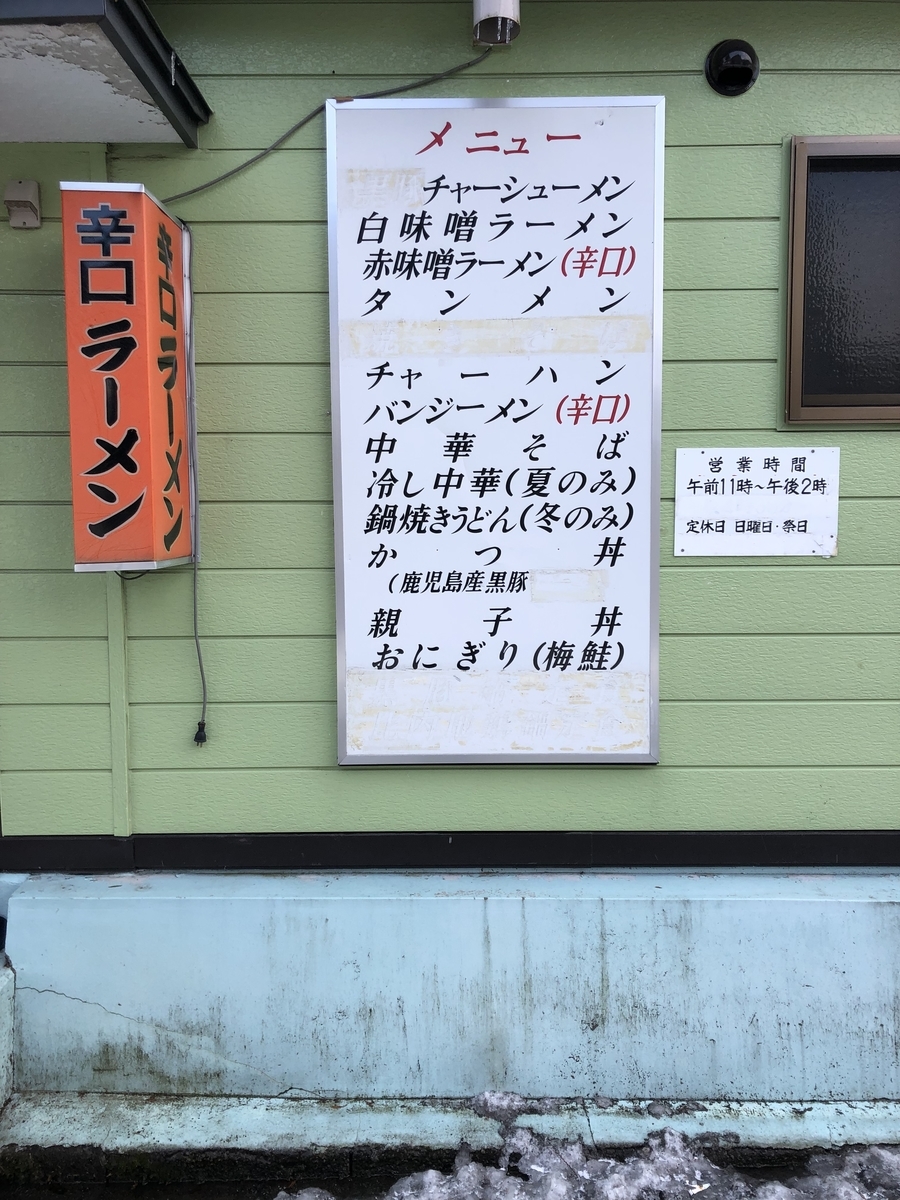 辛口ラーメン
辛口ラーメン
メニュー
チャーシューメン
白味噌ラーメン
赤味噌ラーメン(辛口)
タンメン
チャーハン
バンジーメン(辛口)
中華そば
冷し中華(夏のみ)
鍋焼きうどん(冬のみ)
かつ丼
(鹿児島産黒豚
親子丼
おにぎり(梅鮭)
営業時間
午前11時~午後2時
定休日 日曜日・祭日